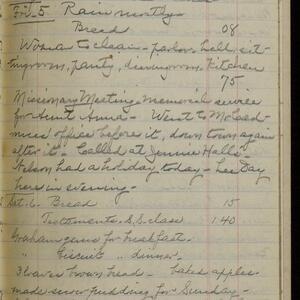 Fri. 5 Rain mostly -
Bread 08
Woman to clean - parlor, hall, sit-
tingroom, pantry, diningroom, kitchen
75
Missionary Meeting - memorial service
for Aunt Anna - Went to
office before it, down town again
after it - Called at Jennie Halls -
had a holiday today - Day
here in evening -
Sat. 6. Bread 15
Testaments S.S. class 1.40
Graham gems for breakfast -
" biscuit " dinner -
3 loaves brown bread - baked apples
made pudding for Sunday -